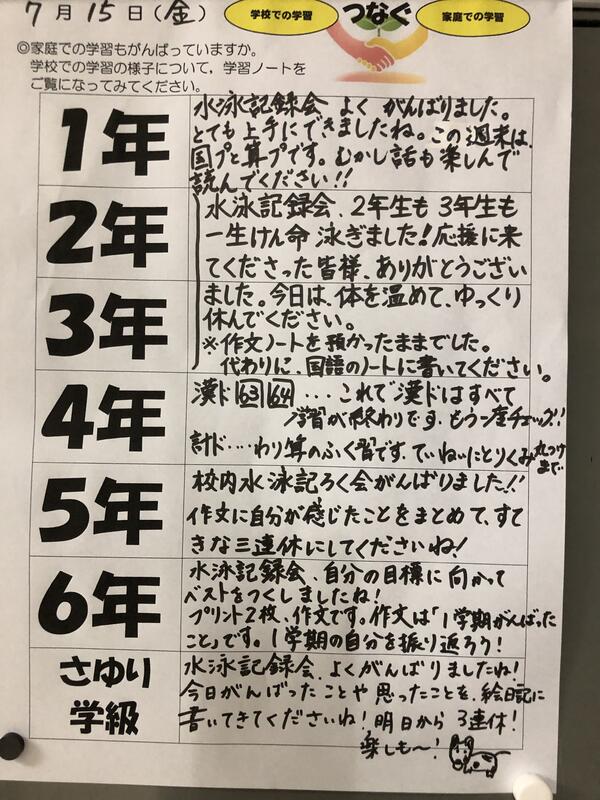 7月15日(金)
学校での学習 つなぐ 家庭での学習
◎家庭での学習もがんばっていますか。
学校での学習の様子について，学習ノートを
ご覧になってみてください。
1年
水泳記録会 よく がんばりました。
とても上手にできましたね。この週末は、
国プと算プです。むかし話も楽しんで
読んでください!!
2年
水泳記録会、2年生も3年生も
一生けん命 泳ぎました!応援に来
てくださった皆様、ありがとうござい
3年
ました。今日は、体を温めて、ゆっくり
休んでください。
※作文ノートを預かったままでした。
代わりに、国語のノートに書いてください。
4年
漢ド63 64 ...これで漢ドはすべて
学習が終わりです。もう一度チェック!!
計ド...わり算のふく習です。ていねいにとりくみ丸つけ
まで
5年
校内水泳記ろく会がんばりました!!
作文に自分が感じたことをまとめて、すて
きな三連休にしてくださいね!
6年
水泳記録会、自分の目標に向かって
ベストをつくしましたね!
プリント2枚、作文です。作文は「1学期がんばった
こと」です。1学期の自分を振り返ろう!
さゆり
学級
水泳記録会、よくがんばりましたね!
今日がんばったことや思ったことを、絵日記に
書いてきてくださいね!明日から3連休!
楽しも〜!